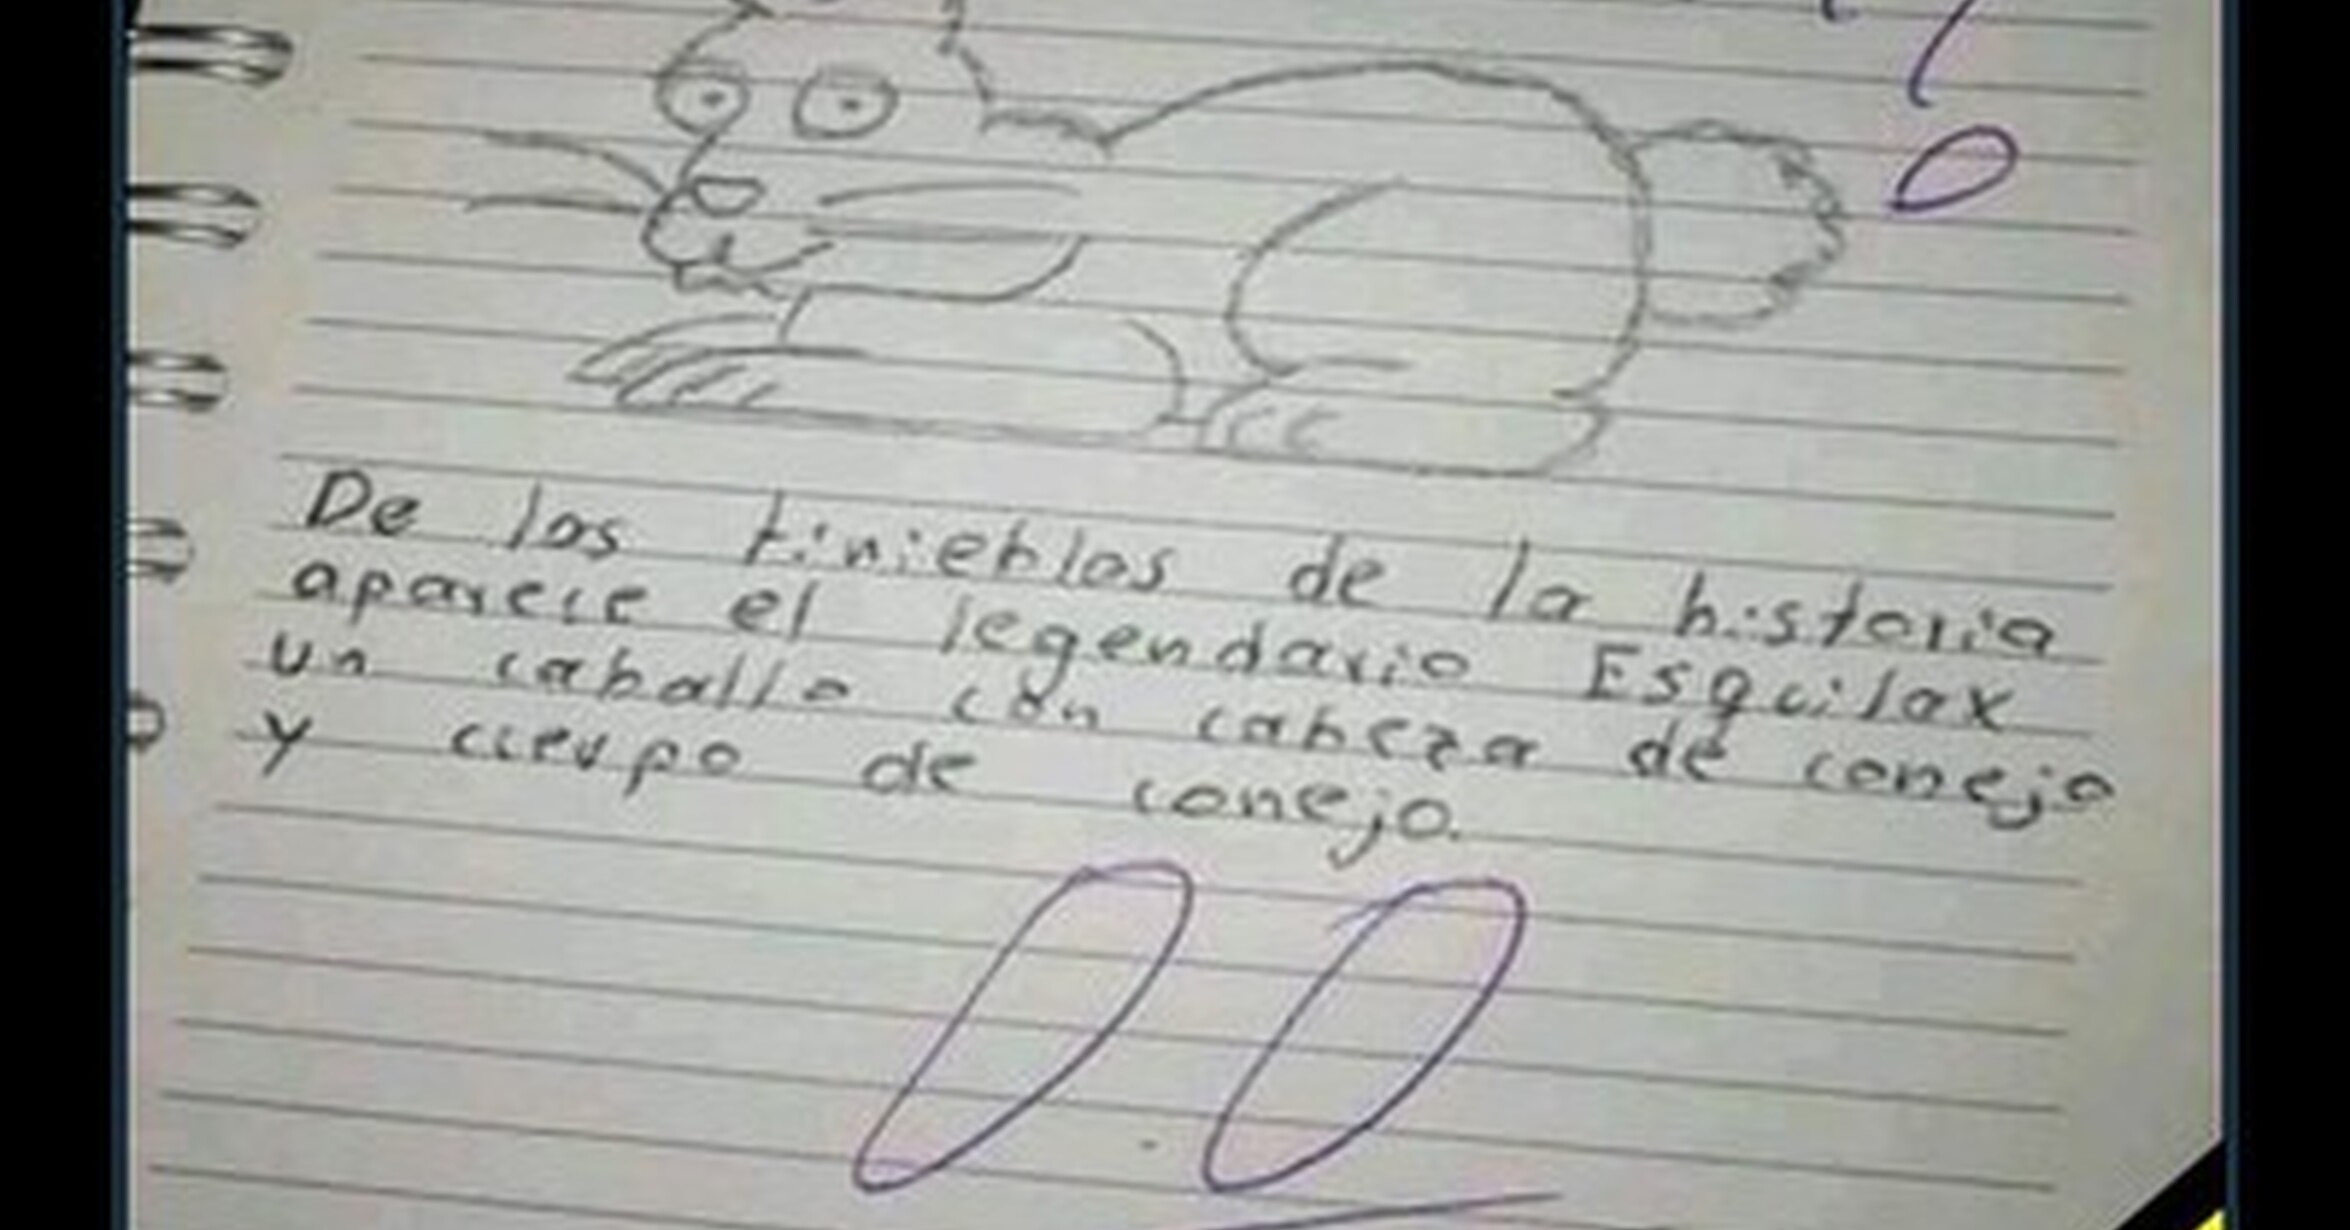 De las tinieblas de la historia
aparece el legendario Esquilax
un caballo con cabeza de conejo
y cuerpo de conejo.
0.0